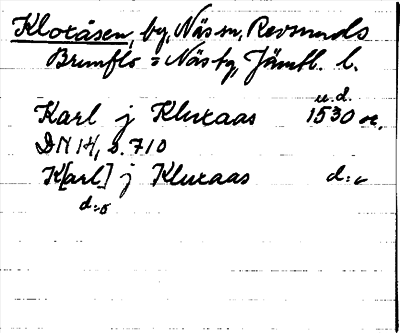 Kloxåsen, by, Näs sn, Revsunds
Brunflo = Näs tg, Jämtl. l.
u.d.
Karl j Kluxaas 1530 av.
DN 14, s. 710
K[arl] j Kluxaas d:o
d:o